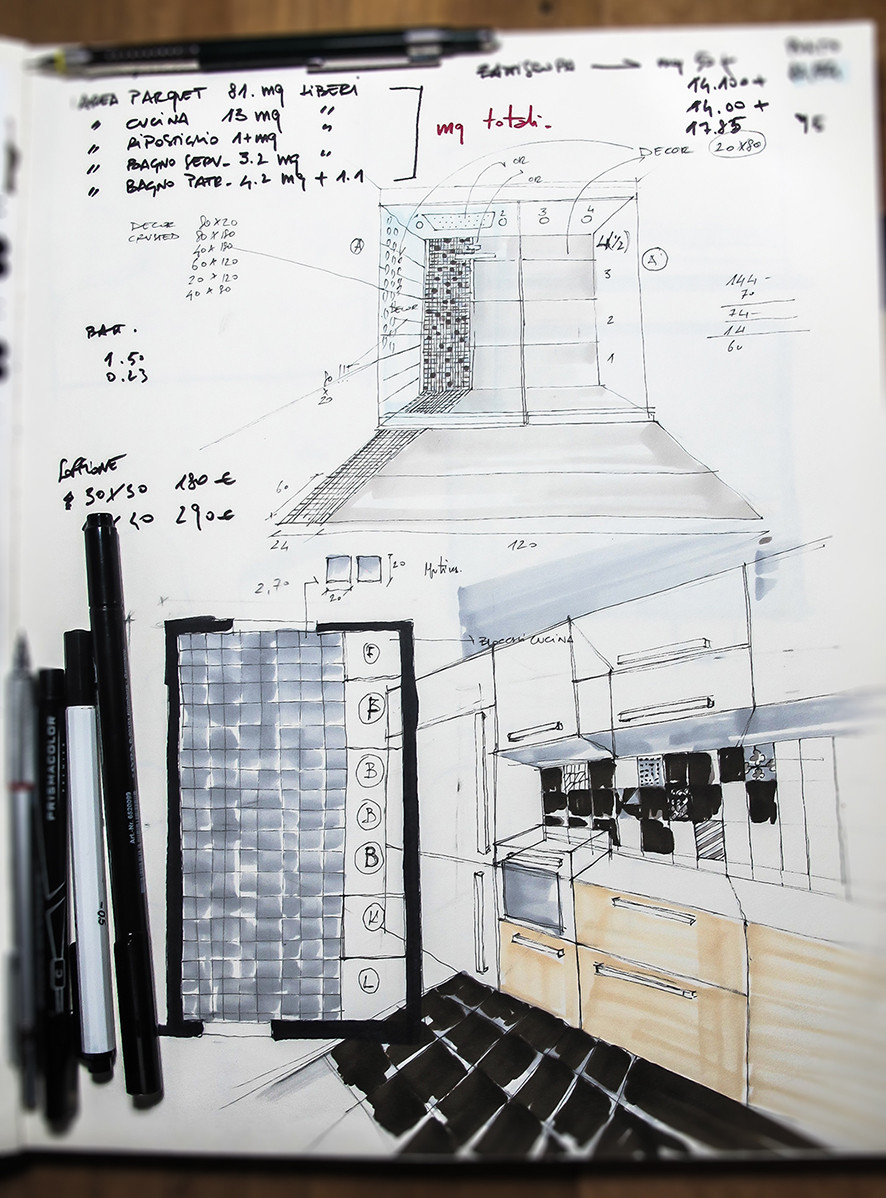 AREA PARQUET 81. mq LIBERI
" CUCINA 13 mq "
" RIPOSTIGLIO 1+mq "
" BAGNO SERV. 3.2 mq "
" BAGNO PATR. 4.2 mq + 1.1
mq totali.
BATTISCOPA → mq
14.100+
14.00+
17.85
DECOR 20x80
OR
OR
DECOR 80x20
CRUSHED 80x180
40x180
60x120
20x120
40x80
A
2 3 4
4(1/2)
A'
3
2
1
DECOR
80
x
20
144-
70
74-
14
60
BATT.
1.50
0.23
SOFFIONE
30x30 180€
40 290€
60
24 120
2,70
20
20
BLOCCHI CUCINA
F
B
B
B
K
L
PRISMACOLOR
PREMIER